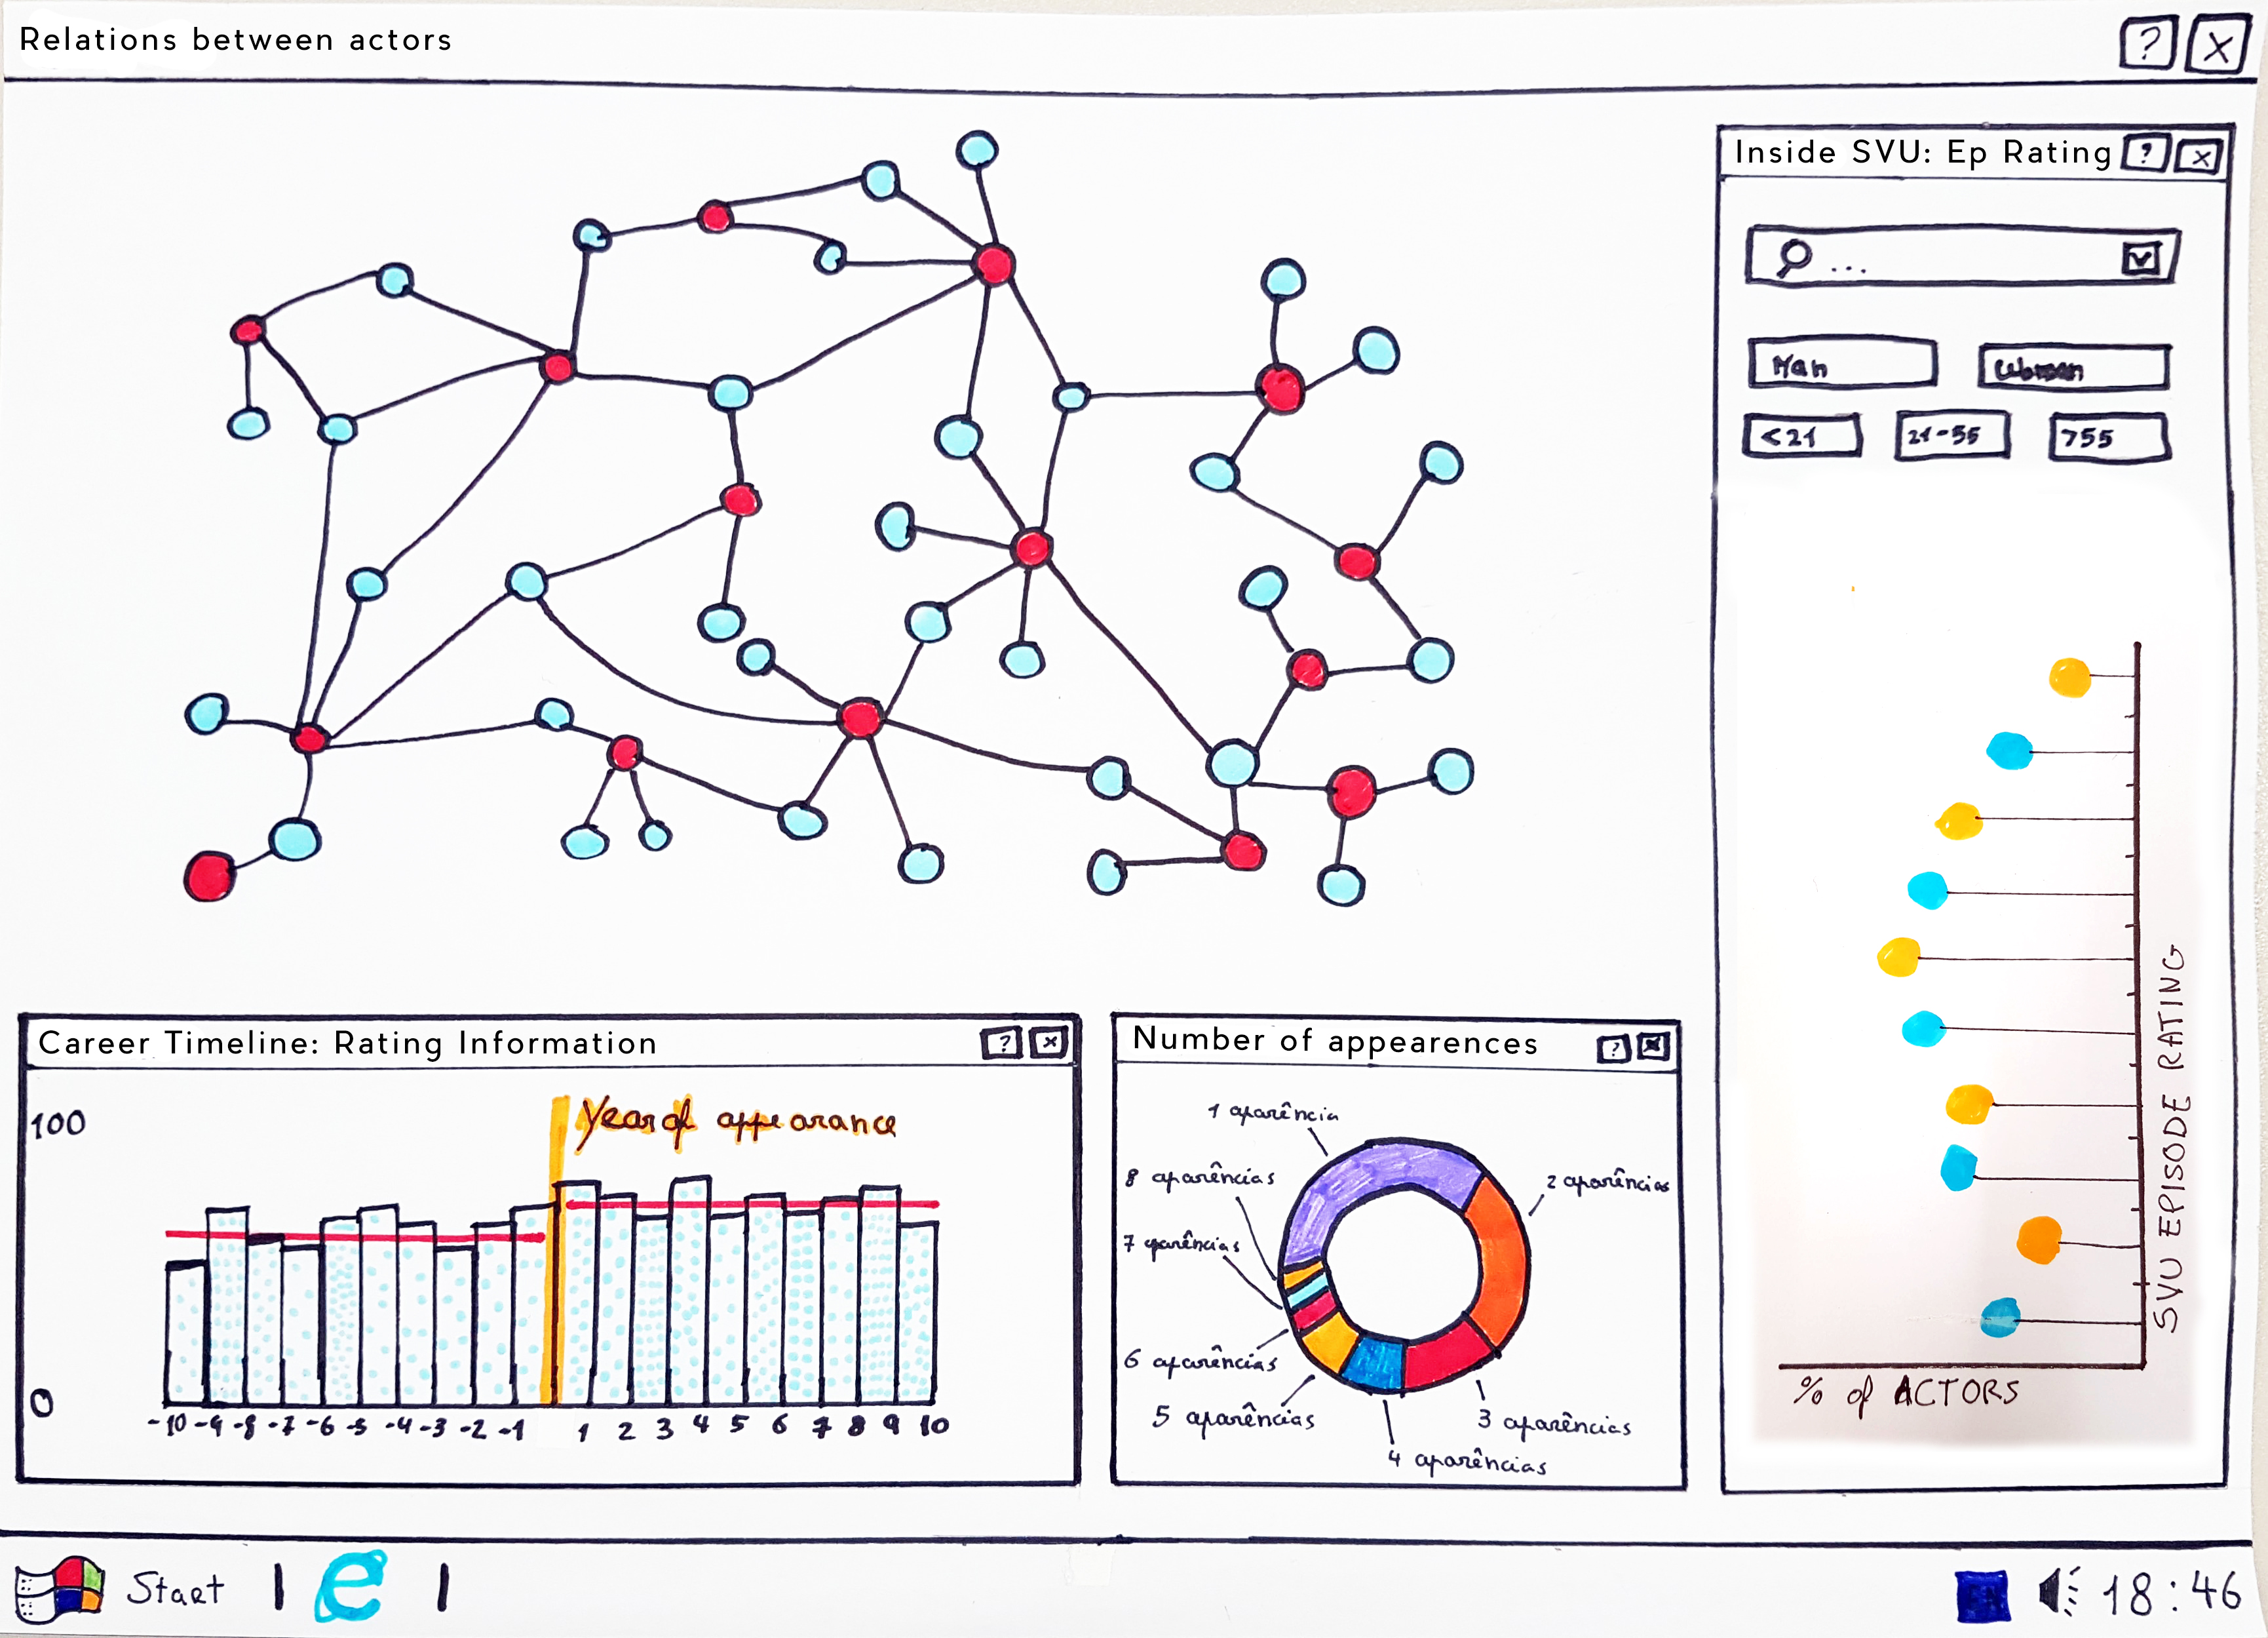 Relations between actors
? X
Inside SVU: Ep Rating ? X
...
Man Woman
<21 21-55 >55
SVU EPISODE RATING
% of ACTORS
Career Timeline: Rating Information ? X
100
Year of appearance
0
-10 -9 -8 -7 -6 -5 -4 -3 -2 -1 1 2 3 4 5 6 7 8 9 10
Number of appearences ? X
1 aparência
8 aparências
2 aparências
7 aparências
6 aparências
5 aparências
3 aparências
4 aparências
Start | e | 18:46